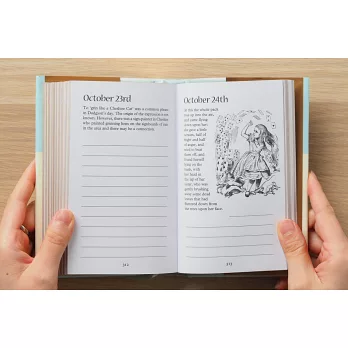 October 23rd
To 'grin like a Cheshire Cat' was a common phrase
in Dodgson's day. The origin of the expression is not
known. However, there was a sign-painter in Cheshire
who painted grinning lions on the signboards of inns
in the area and there may be a connection.
312
October 24th
At this the whole pack
rose up into the air,
and came flying
down upon her: she
gave a little
scream, half of
fright and half
of anger, and
tried to beat
them off, and
found herself
lying on the
bank, with
her head in
the lap of her
sister, who was
gently brushing
away some dead
leaves that had
fluttered down from
the trees upon her face.
313